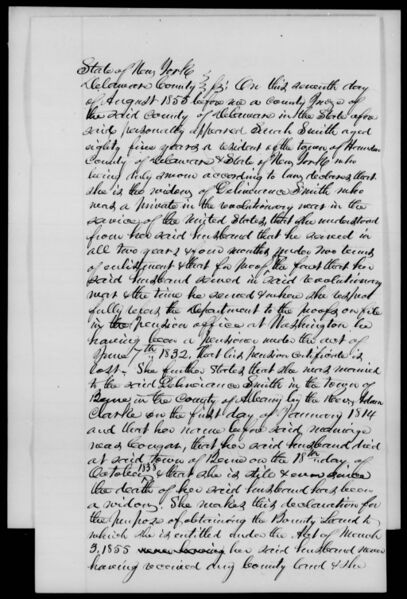 State of New York
Delaware County } ss: On this seventh day
of August 1855 before me a County Judge of
the said County of Delaware in the State afore
said personally appeared Sarah Smith aged
eighty five years a resident of the town of
County of Delaware & State of New York who
being duly sworn according to law, declares that
she is the widow of Deliverance Smith who
was a Private in the revolutionary war in the
service of the United States, that she understood
from her said husband that he served in
all two years & four months under two terms
of enlistment & that for proof the fact that her
said husband served in said revolutionary
war & the time he served & where she respect
fully refers the Department to the proofs on file
in the Pension office at Washington he
having been a pensioner under the act of
June 7th 1832, that his pension certificate is
lost. She further States that she was married
to the said Deliverance Smith in the town of
Berne in the County of Albany by the Revd Adam
Clarke on the first day of January 1814
and that her name before said marriage
was Cougar, that her said husband died
at said town of Berne on the 18th day of
October 1838 & that she is still & ever since
the death of her said husband has been
a widow. She makes this declaration for
the purpose of obtaining the Bounty Land to
which she is entitled under the Act of March
3, 1855 never having her said husband never
having received any bounty land & she